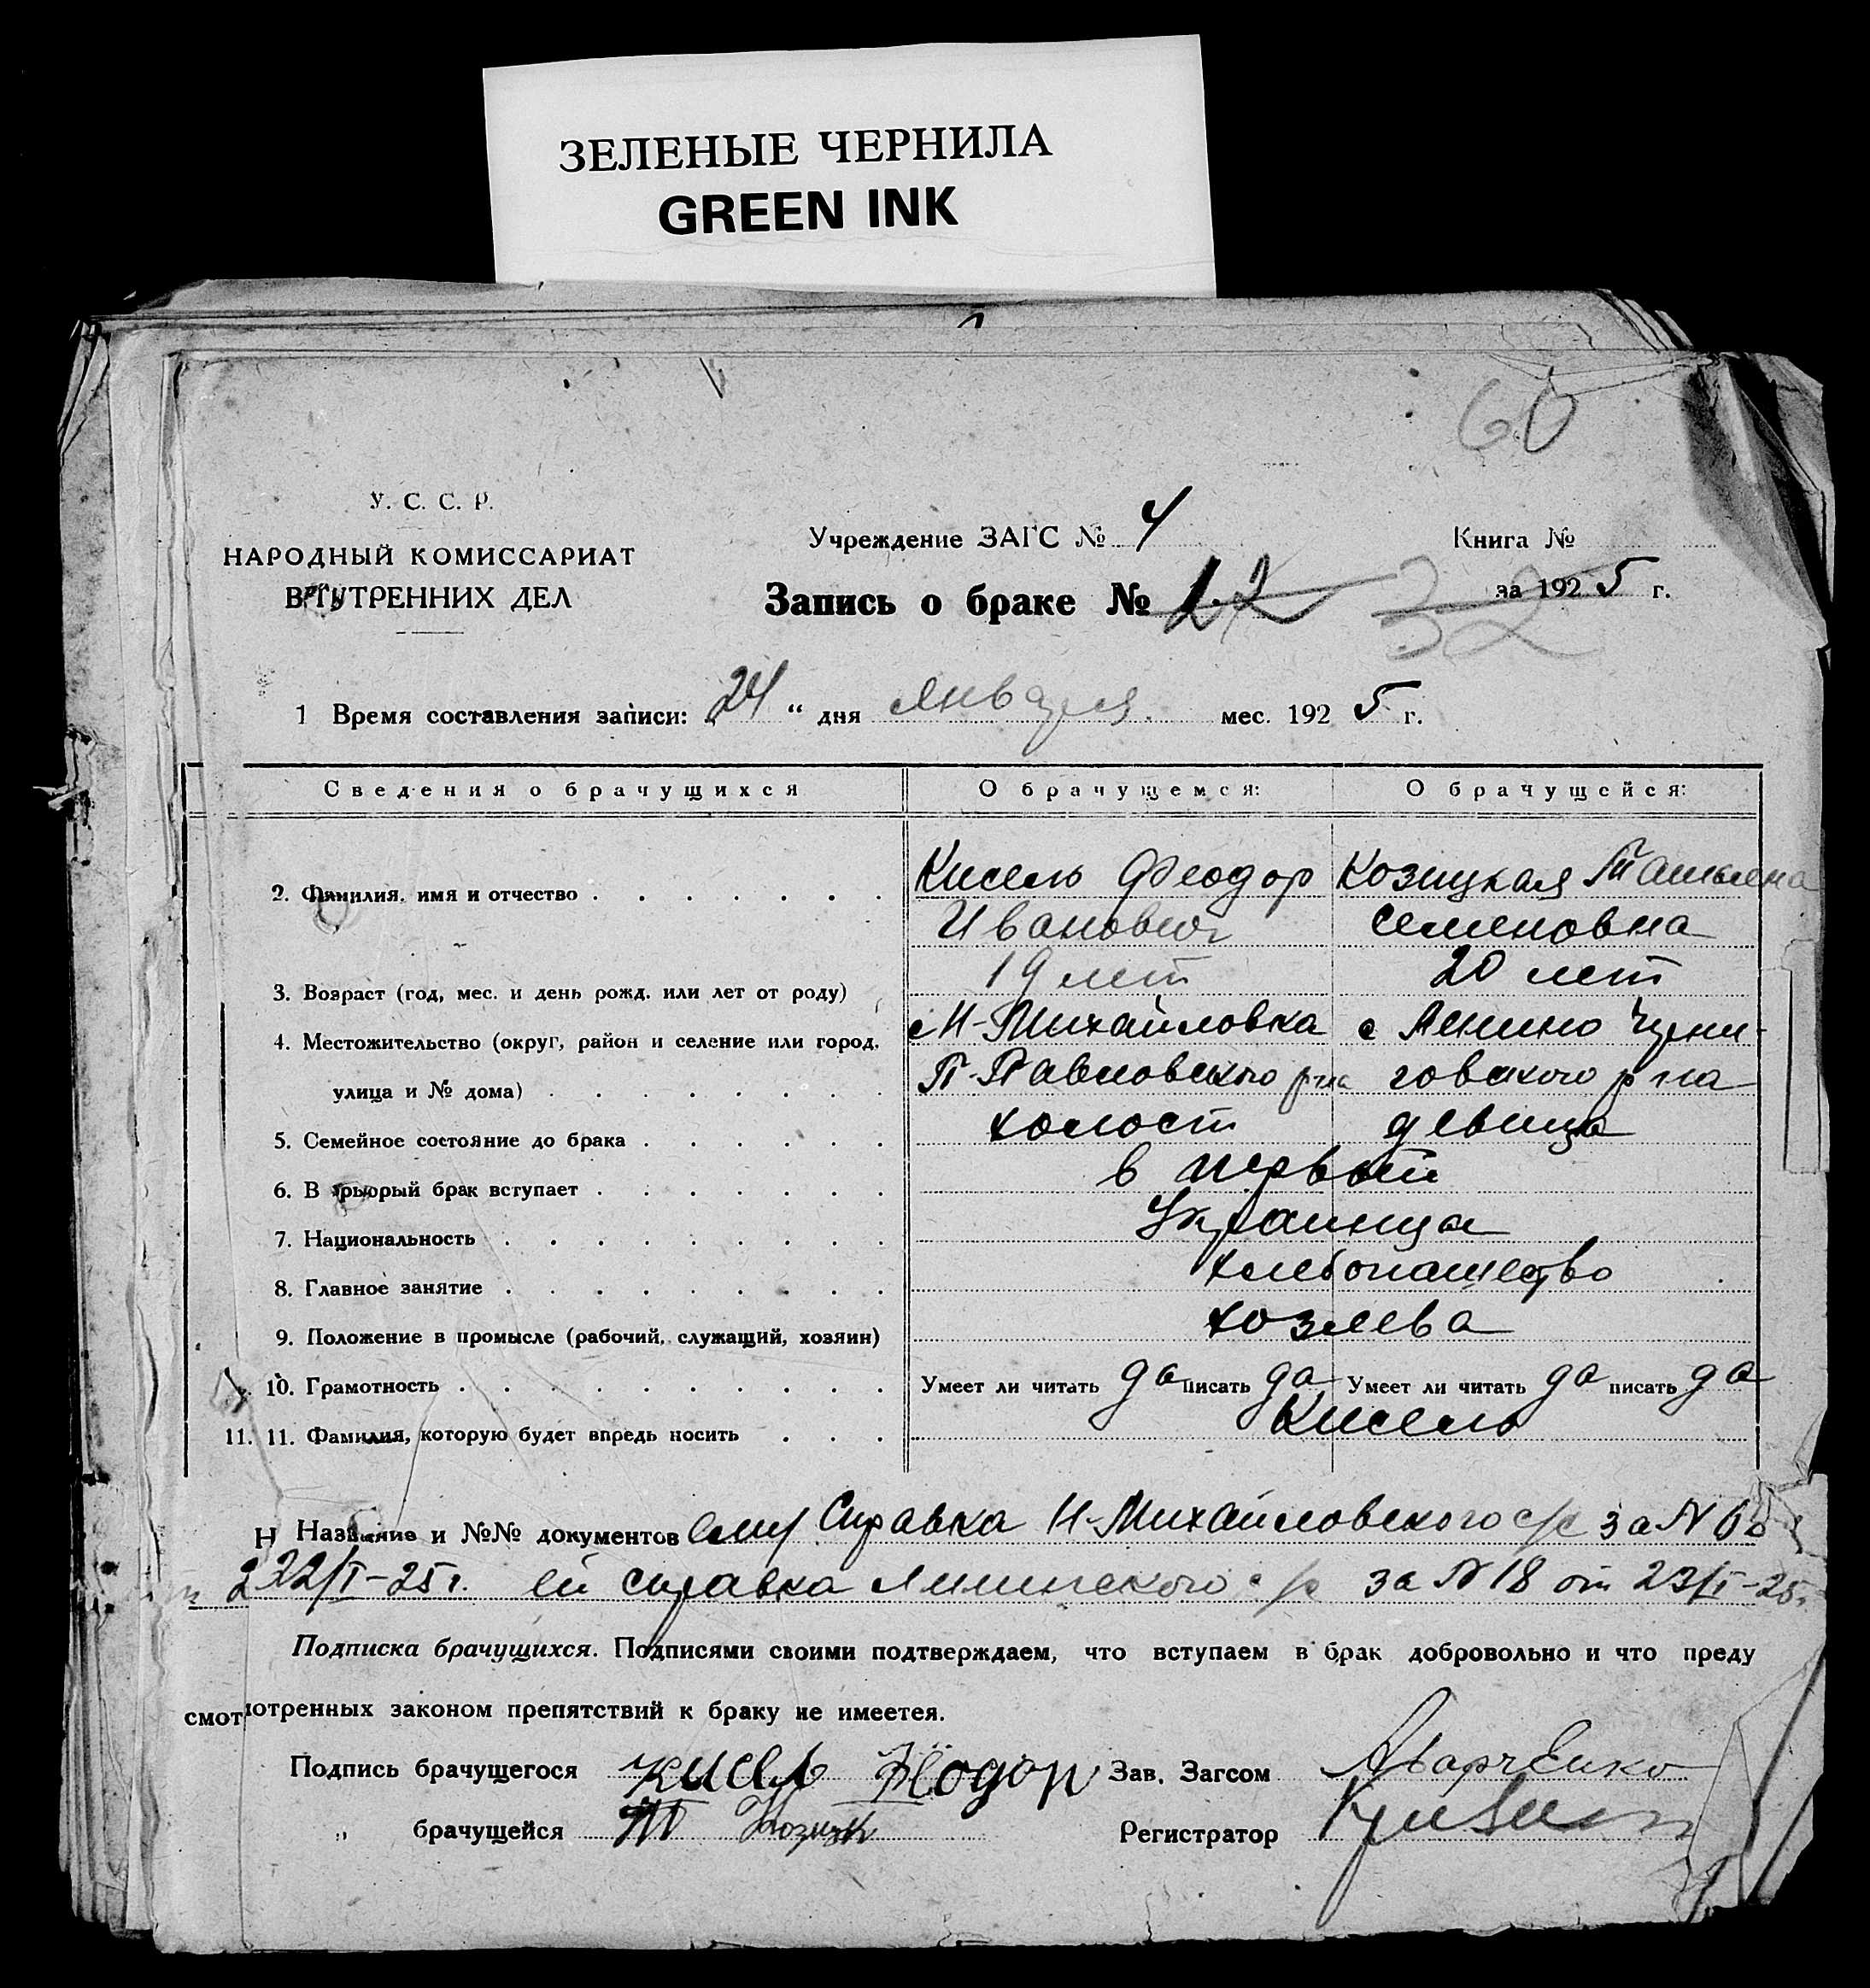 ЗЕЛЕНЫЕ ЧЕРНИЛА
GREEN INK
60
У. С. С. Р.
НАРОДНЫЙ КОМИССАРИАТ
ВНУТРЕННИХ ДЕЛ
Учреждение ЗАГС № 4
Книга №
за 1925 г.
Запись о браке № 12 32
1 Время составления записи: „24“ дня января мес. 1925 г.
Сведения о брачущихся О брачущемся: О брачущейся:
2. Фамилия, имя и отчество Кисель Феодор Козицкая Татьяна
Иванович Семеновна
3. Возраст (год, мес. и день рожд. или лет от роду) 19 лет 20 лет
4. Местожительство (округ, район и селение или город, с Н-Михайловка с Ленино Черни-
улица и № дома) П-Павловского р-на говского р-на
5. Семейное состояние до брака холост девица
6. В который брак вступает в первый
7. Национальность Украинцы
8. Главное занятие хлебопашество
9. Положение в промысле (рабочий, служащий, хозяин) хозяева
10. Грамотность Умеет ли читать да писать да Умеет ли читать да писать да
11. 11. Фамилия, которую будет впредь носить Кисель
Название и №№ документов ему Справка Н-Михайловского с/с за N
22/I-25г. ей справка Ленинского с/с за N 18 от 23/I-25г
Подписка брачущихся. Подписями своими подтверждаем, что вступаем в брак добровольно и что преду
смотренных законом препятствий к браку не имеетея.
Подпись брачущегося Кисель Феодор Зав. Загсом
„ брачущейся Т Козицк Регистратор